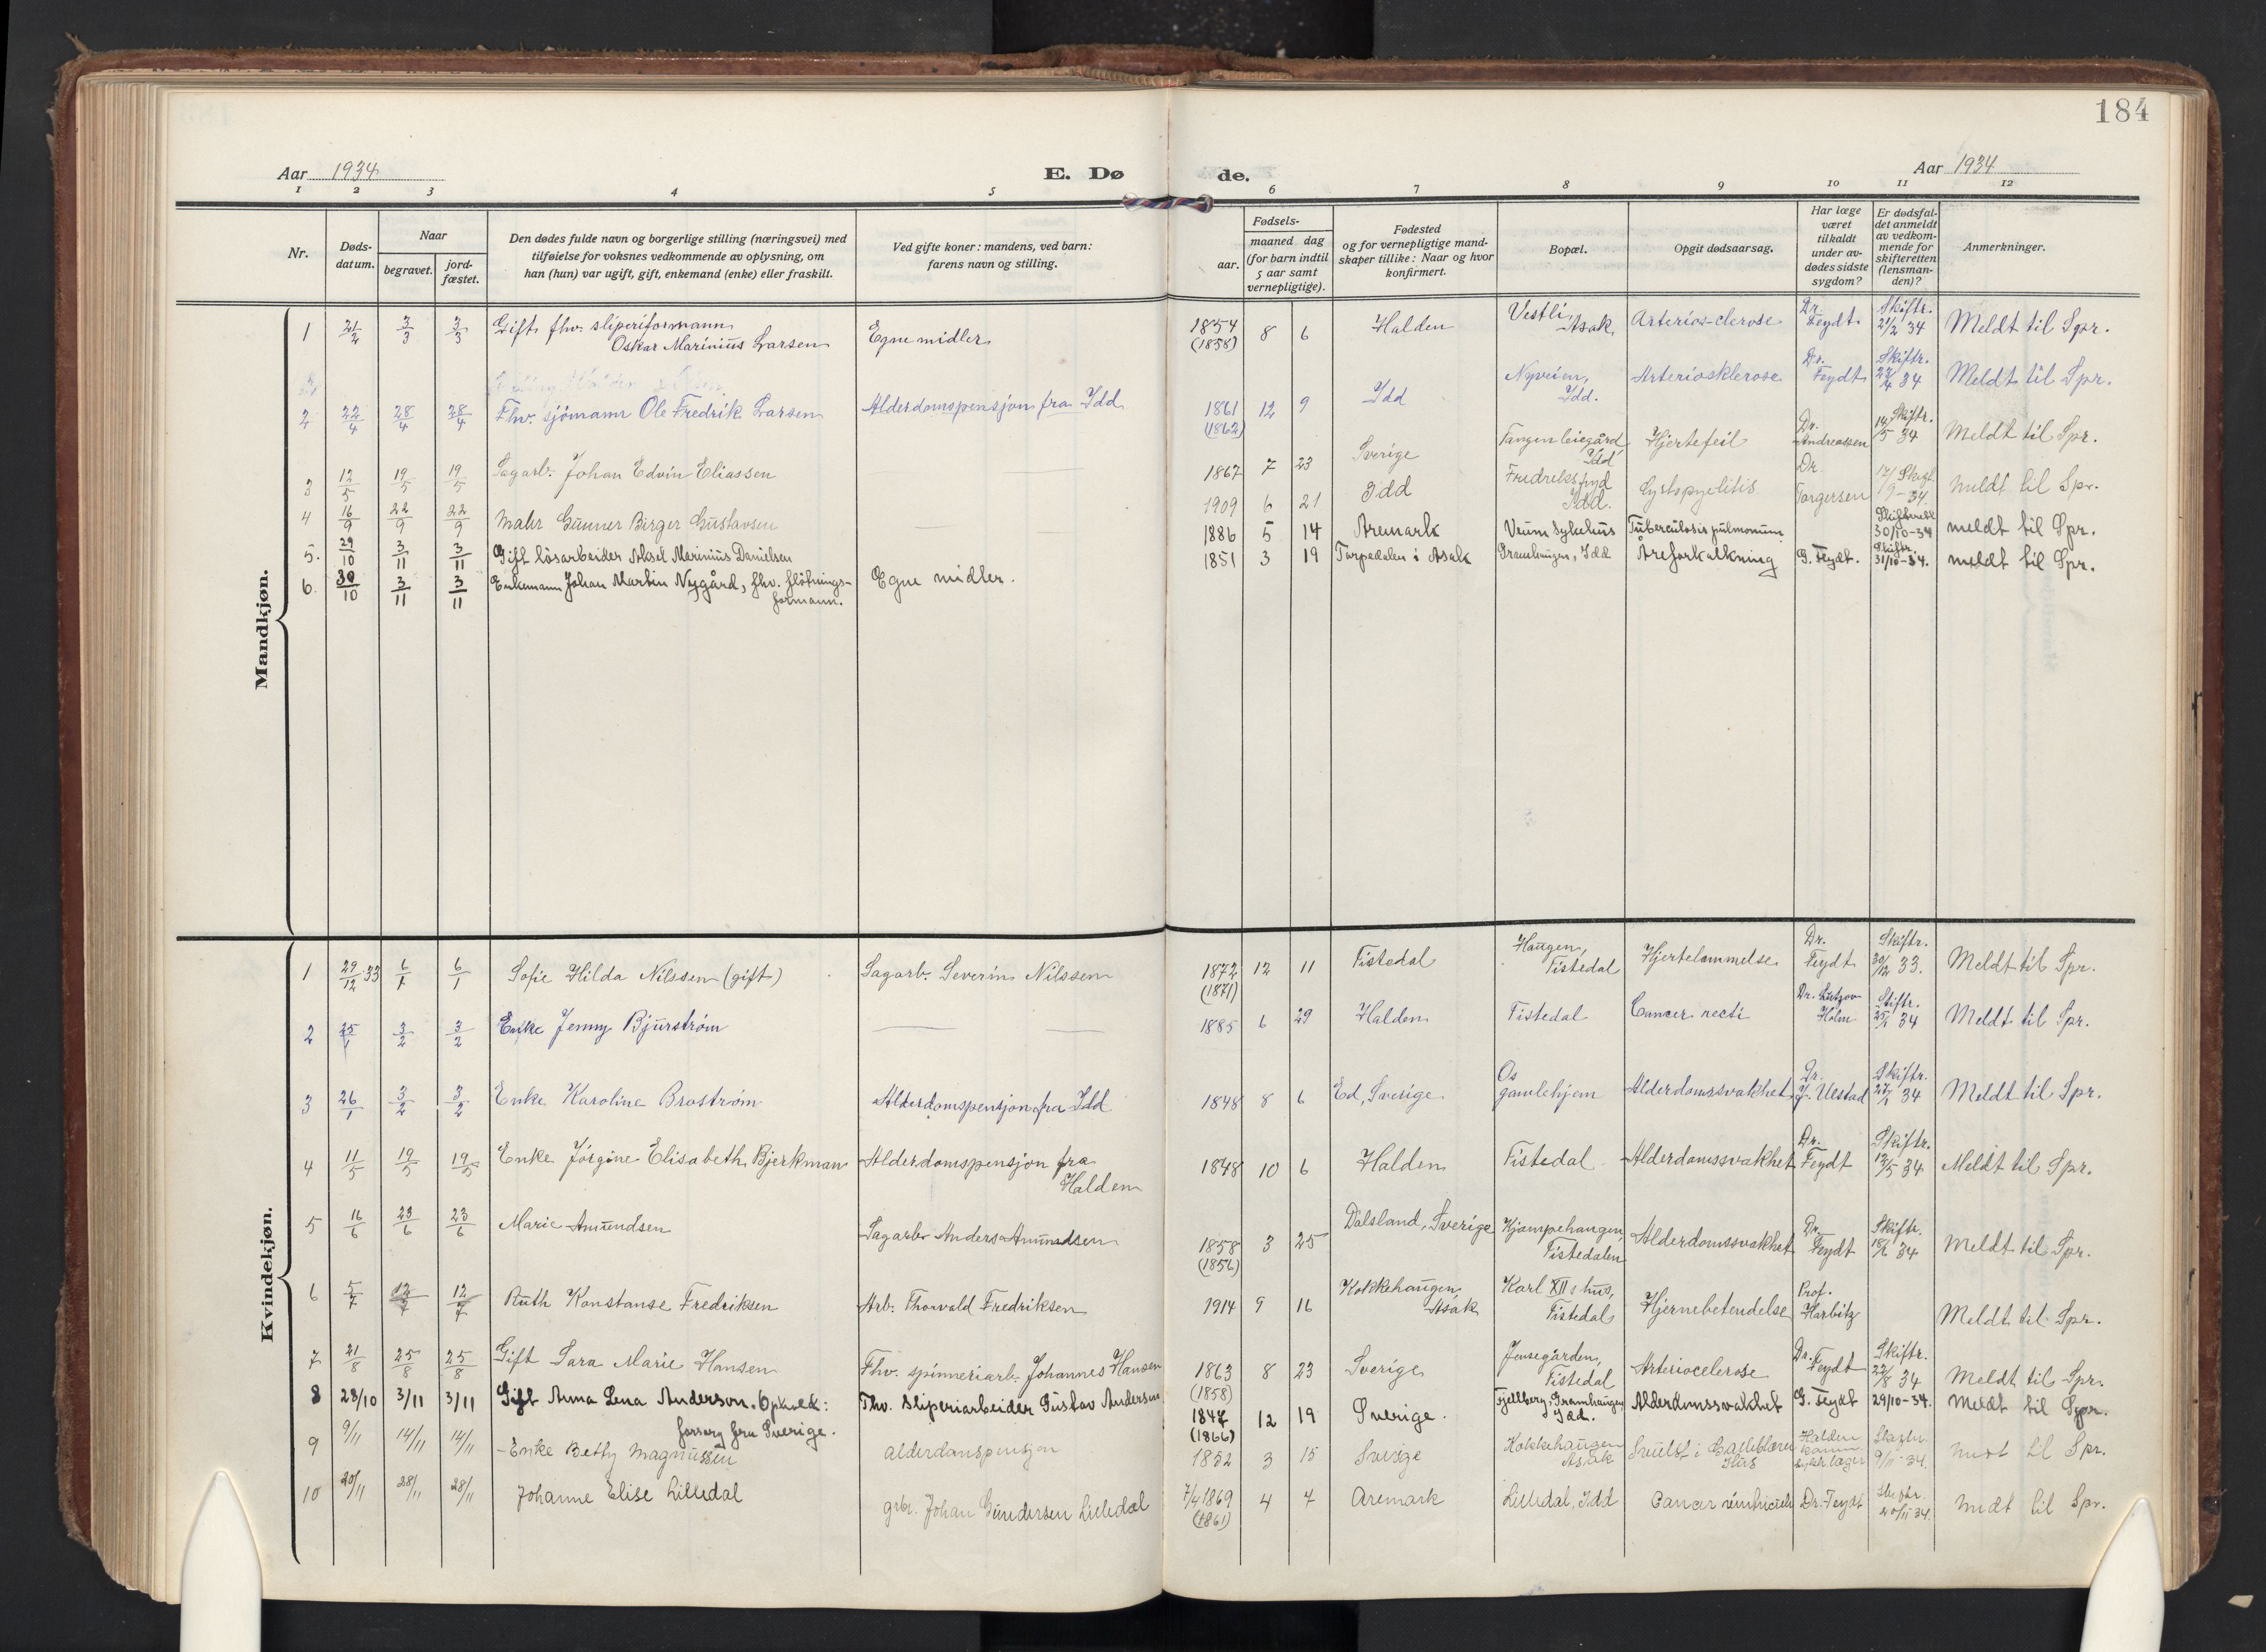 184
Aar 1934
E. Dø
de.
Aar 1934
1 2 3 4 5 6 7 8 9 10 11 12
Nr.
Døds-
datum.
Naar
begravet.
jord-
fæstet.
Den dødes fulde navn og borgerlige stilling (næringsvei) med
tilføielse for voksnes vedkommende av oplysning, om
han (hun) var ugift, gift, enkemand (enke) eller fraskilt.
Ved gifte koner: mandens, ved barn:
farens navn og stilling.
Fødsels-
aar.
maaned dag
(for barn indtil
5 aar samt
vernepligtige).
Fødested
og for vernepligtige mand-
skaper tillike: Naar og hvor
konfirmert.
Bopæl.
Opgit dødsaarsag.
Har læge
været
tilkaldt
under av-
dødes sidste
sygdom?
Er dødsfal-
det anmeldt
av vedkom-
mende for
skifteretten
(lensman-
den)?
Anmerkninger.
Mandkjøn.
1 21/2 3/3 3/3 Gift fhv. sliperiformann
Oskar Marinius Larsen
Egne midler
1854
(1858)
8 6 Halden
Vestli,
Asak
Arterios-clerose
Dr.
Feydt
Skiftr.
21/2 34
Meldt til Spr.
2 22/4 28/4 28/4 Fhv. sjömann Ole Fredrik Larsen
Alderdomspensjon fra Idd
1861
(1862)
12 9 Idd
Nyveien,
Idd.
Arteriosklerose
Dr.
Feydt
Skiftr.
23/4 34
Meldt til Spr.
3 12/5 19/5 19/5 Sagarb. Johan Edvin Eliassen
1867 7 23 Sverige
Tangen leiegård
Idd
Hjertefeil
Dr.
Andreassen
Skiftr.
14/5 34
Meldt til Spr.
4 16/9 22/9 22/9 Maler Gunner Birger Gustavsen
1909 6 21 Idd
Fredriksfryd
Idd.
Cystopyelitis
Dr.
Torgersen
17/9-34
meldt til Spr.
5. 29/10 3/11 3/11 Gift lösarbeider Aksel Marinius Danielsen
1886 5 14 Aremark
Veum Sykehus
Tuberculosis pulmonum
Skifterett
30/10-34
meldt til Spr.
6. 30/10 3/11 3/11 Enkemann Johan Martin Nygård, fhv. flötnings-
formann.
Egne midler.
1851 3 19 Torpedalen i Asak
Gramhaugen, Idd
Åreforkalkning
G. Feydt.
Skiftr.
31/10-34.
meldt til Spr.
Kvindekjøn.
1 29/12 33 6/1 6/1 Sofie Hilda Nilssen (gift)
Sagarb. Severin Nilssen
1872
(1871)
12 11 Tistedal
Haugen,
Tistedal
Hjertelammelse
Dr.
Feydt
Skiftr.
30/12 33.
Meldt til Spr.
2 25/1 3/2 3/2 Enke Jenny Bjurström
1885 6 29 Halden
Tistedal
Cancer recti
Dr. Lützow
Holm
Skiftr.
25/1 34
Meldt til Spr.
3 26/1 3/2 3/2 Enke Karoline Broström
Alderdomspensjon fra Idd
1848 8 6 Ed, Sverige
Os
gamlehjem
Alderdomssvakhet
Dr.
J. Ulstad
Skiftr.
27/1 34
Meldt til Spr.
4 11/5 19/5 19/5 Enke Jörgine Elisabeth Bjerkman
Alderdomspensjon fra
Halden
1848 10 6 Halden
Tistedal
Alderdomssvakhet
Dr.
Feydt
Skiftr.
12/5 34
Meldt til Spr.
5 16/6 23/6 23/6 Marie Amundsen
Sagarb. Anders Amundsen
1858
(1856)
3 25 Dalsland, Sverige
Kjempehaugen,
Tistedalen
Alderdomssvakhet
Dr.
Feydt
Skiftr.
18/6 34
Meldt til Spr.
6 5/7 12/7 12/7 Ruth Konstanse Fredriksen
Arb. Thorvald Fredriksen
1914 9 16 Kokkehaugen,
Asak
Karl XIIs hus,
Tistedal
Hjernebetendelse
Prof.
Harbitz
Meldt til Spr.
7 21/8 25/8 25/8 Gift Sara Marie Hansen
Fhv. spinneriarb. Johannes Hansen
1863
(1858)
8 23 Sverige
Jensegården,
Tistedal
Arteriocelerose
Dr. Feydt
Skiftr.
22/8 34
Meldt til Spr.
8 28/10 3/11 3/11 Gift Anna Lena Anderson. Ophold:
forsorg fra Sverige.
Fhv. Sliperiarbeider Gustav Anderson
1847
(1866)
12 19 Sverige.
Fjellberg, Gramhaugen,
Idd.
Alderdomssvakhet
G. Feydt
29/10-34.
Meldt til Spr.
9 9/11 14/11 14/11 -Enke Bethy Magnussen
alderdomspensjon
1852 3 15 Sverige
Kokkehaugen
Asak
Svulst i
Halden
9/11-34.
meldt til Spr.
10 20/11 28/11 28/11 Johanne Elise Lilledal
grbr. Johan Gundersen Lilledal
7/4 1869
(1861)
4 7 Aremark
Lilledal, Idd
Cancer ventriculi
Dr. Feydt
Skiftr.
20/11 34.
meldt til Spr.